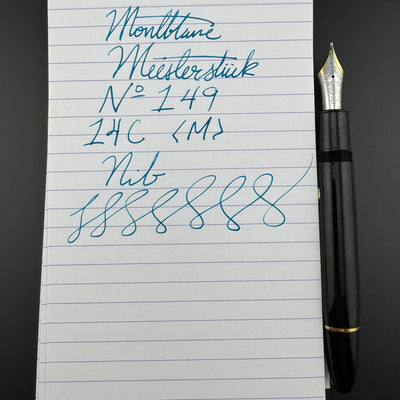 Montblanc
Meisterstück
Nº 149
14C <M>
Nib